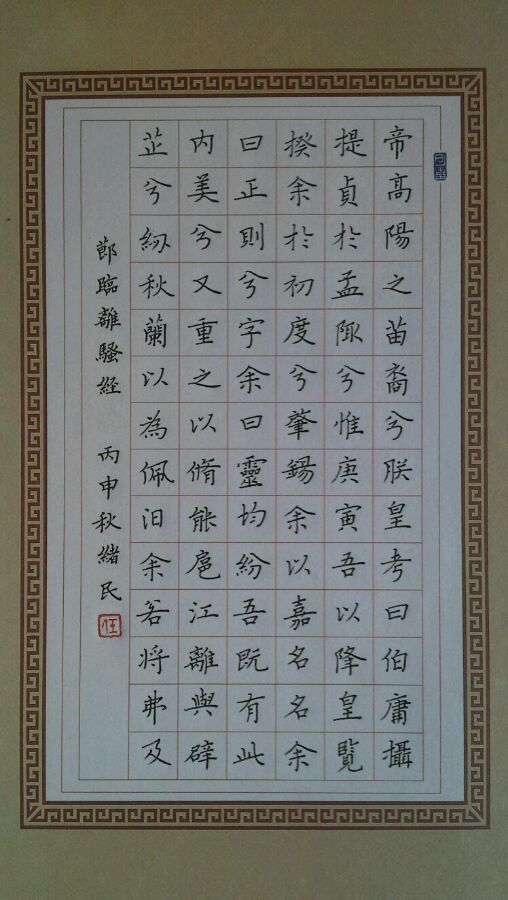 帝高陽之苗裔兮朕皇考曰伯庸攝
提貞於孟陬兮惟庚寅吾以降皇覽
揆余於初度兮肇錫余以嘉名名余
曰正則兮字余曰靈均紛吾既有此
内美兮又重之以脩能扈江離與辟
芷兮紉秋蘭以為佩汩余若將弗及
節臨離騷經 丙申秋緒民
任